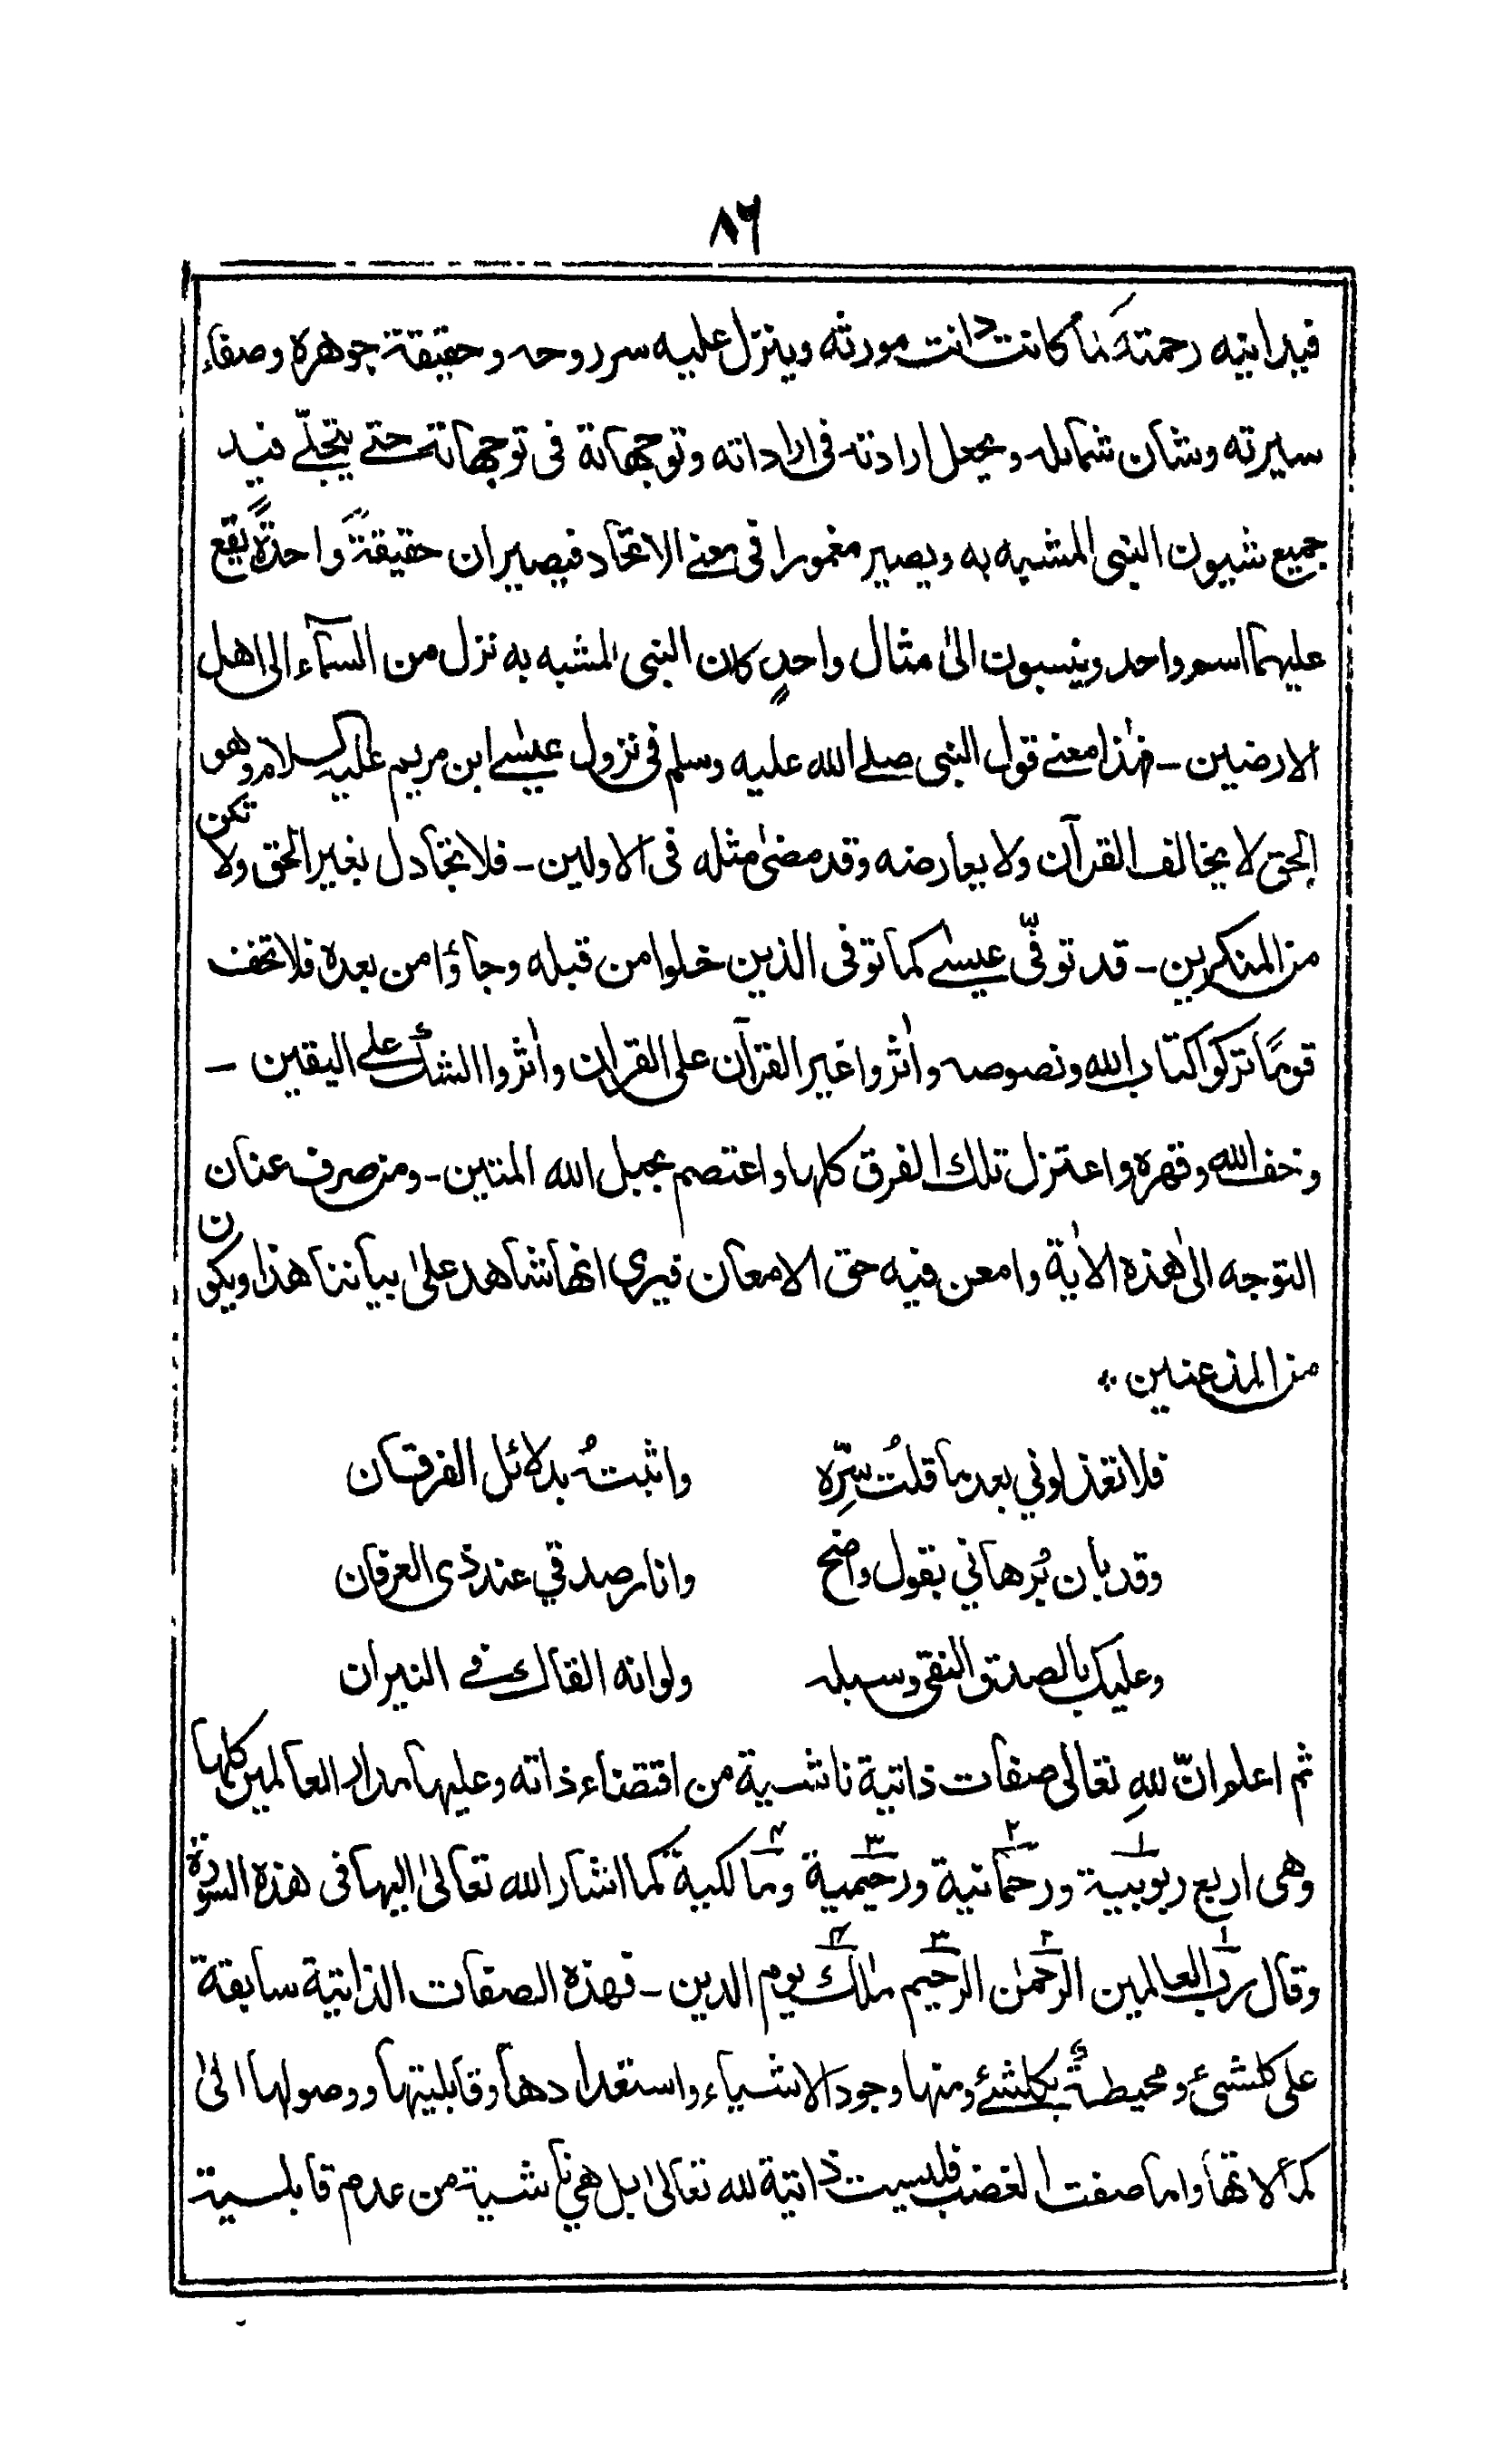 ٨٦
رحمته كانت مورثه وينزل عليه سر روحه وحقيقة جوهره وصفاء
سيرته وشان شمائله ويجعل ارادته فى اراداته وتوجهاته فى توجهاته حتى يتجلّى فيه
جميع شيون النبى المشبه به ويصير مغمورا فى معنى الاتحاد فيصيران حقيقةً واحدةً يقع
عليهما اسم واحد وينسبون الىٰ مثال واحدٍ كان النبى المشبه به نزل من السمآء الى اهل
الارضين - فهٰذا معنى قول النبى صلى الله عليه وسلم فى نزول عيسىٰ ابن مريم عليه السلام وهو
الحق لا يخالف القرآن ولا يعارضه وقد مضىٰ مثله فى الاولين - فلا تجادل بغير الحق ولا تكن
من المنكرين - قد توفّى عيسىٰ كما توفى الذين خلوا من قبله وجاؤا من بعده فلا تخف
قومًا تركوا كتاب الله ونصوصه واٰثروا غير القرآن على القران واٰثروا الشك على اليقين -
وخف الله وقهره واعتزل تلك الفرق كلها واعتصم بحبل الله المتين - ومن صرف عنان
التوجه الىٰ هذه الاٰية وامعن فيه حق الامعان فيرى انها شاهد علىٰ بياننا هذا ويكون
من المذعنين ؞
فلا تعذلونى بعد ما قلتُ سِرّه واثبتُ بدلائل الفرقان
وقد بان بُرهانى بقول واضح وانار صدقى عند ذى العرفان
وعليك بالصدق النقى وسبله ولو انه القاك فى النيران
ثم اعلم انّ للهِ تعالى صفات ذاتية ناشية من اقتضاء ذاته وعليها مدار العالمين كلها
وهى اربع ربوبية ١ ورحمانية ٢ ورحيمية ٣ ومالكية ٤ كما اشار الله تعالىٰ اليها فى هذه السورة
وقال رب العالمين ١ الرحمٰن ٢ الرحيم ٣ مٰلك ٤ يوم الدين - فهذه الصفات الذاتية سابقة
على كلشىء ومحيطة بكلشىء ومنها وجود الاشياء واستعدادها وقابليتها ووصولها الىٰ
كمالاتها واما صفت الغضب فليست ذاتية لله تعالىٰ بل هى ناشية من عدم قابلية